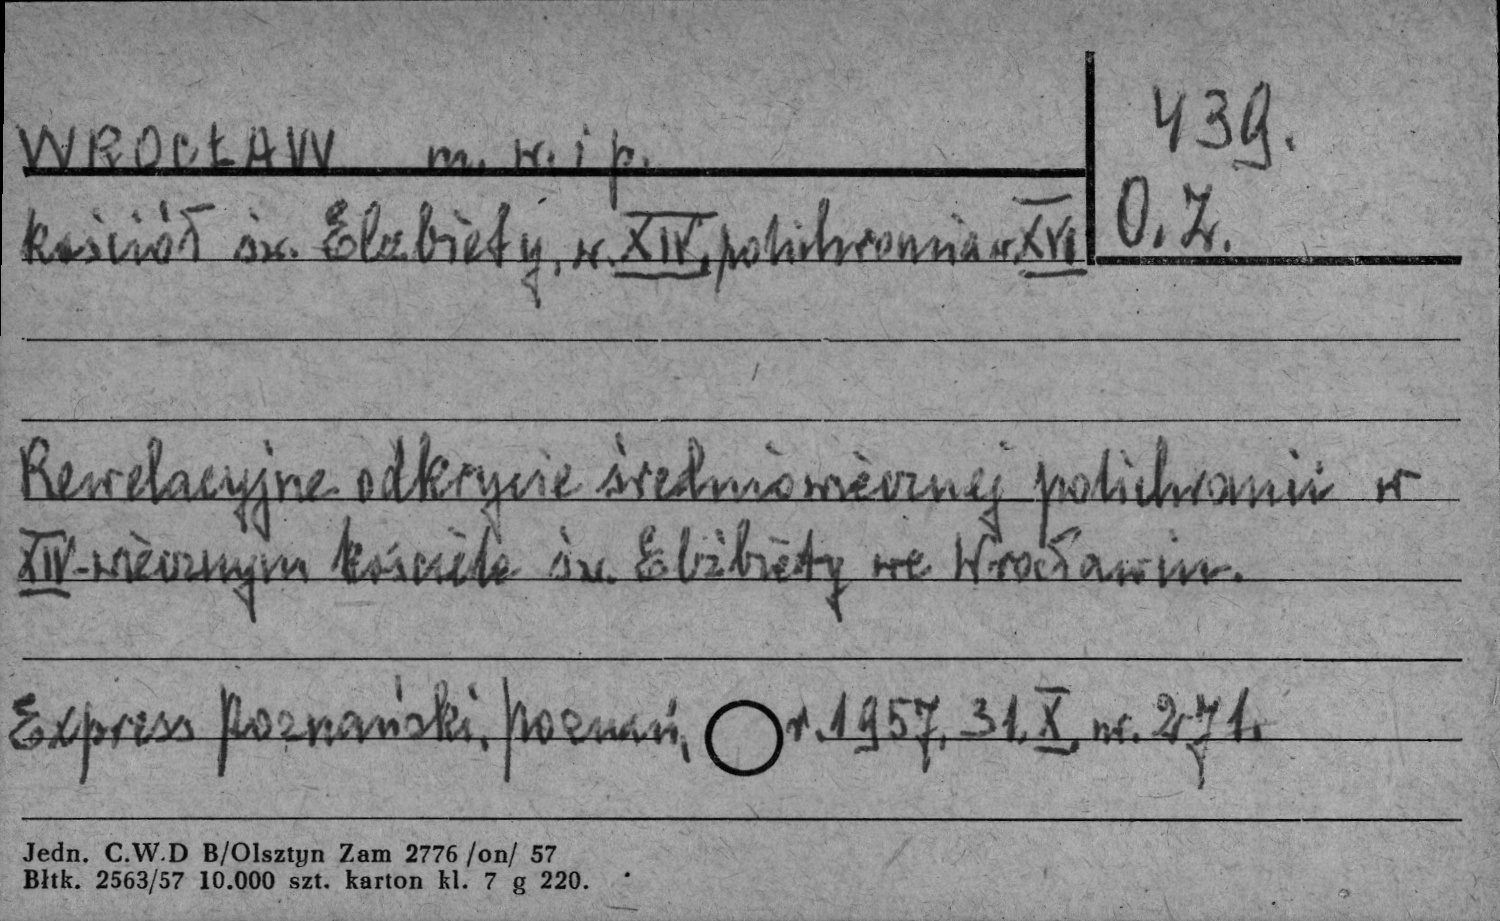 WROCŁAW m. w. i p.
439.
O. Z.
kościół św. Elżbiety, w. XIV, polichromia w. XVI
Rewelacyjne odkrycie średniowiecznej polichromii w
XIV-wiecznym kościele św. Elżbiety we Wrocławiu.
Express Poznański, Poznań, r. 1957, 31.X, nr. 271.
Jedn. C.W.D B/Olsztyn Zam 2776 /on/ 57
Błtk. 2563/57 10.000 szt. karton kl. 7 g 220.